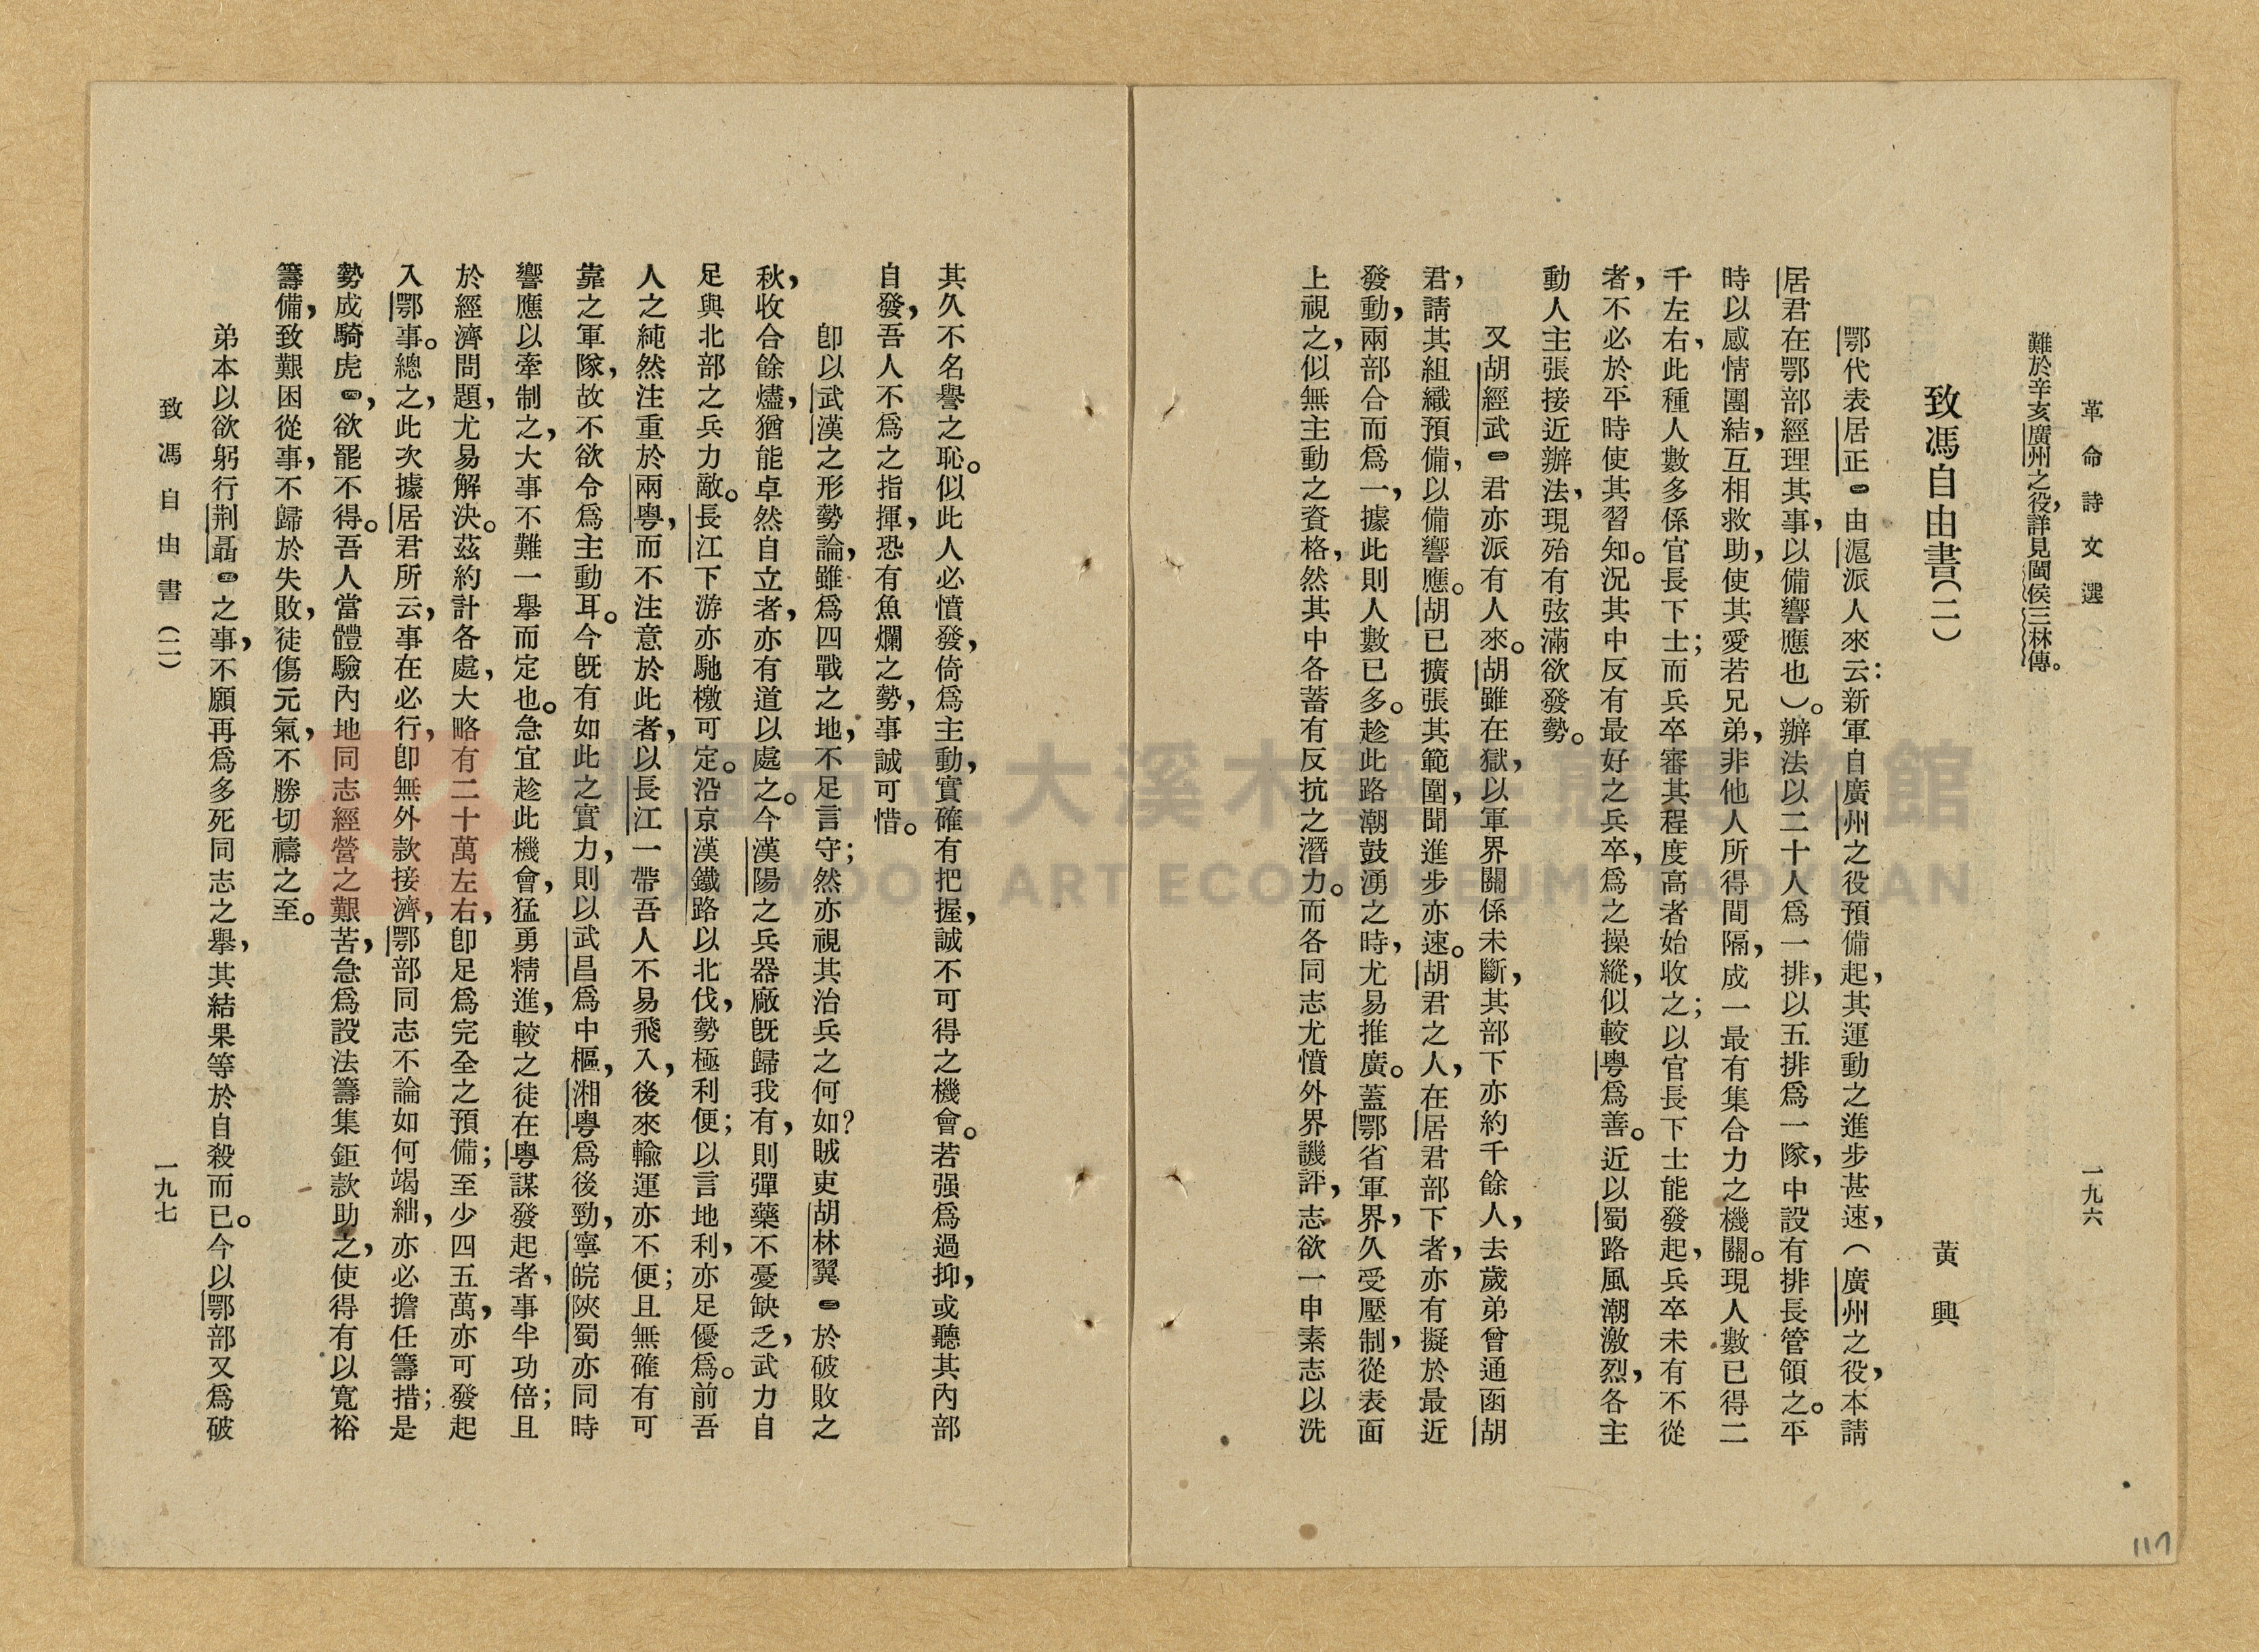 革命詩文選
一九六
難於辛亥廣州之役，詳見閩侯三林傳。
致馮自由書（二）
黃興
鄂代表居正㊀由滬派人來云：新軍自廣州之役預備起，其運動之進步甚速，（廣州之役，本請
居君在鄂部經理其事，以備響應也）。辦法以二十人爲一排，以五排爲一隊，中設有排長管領之。平
時以感情團結，互相救助，使其愛若兄弟，非他人所得間隔，成一最有集合力之機關。現人數已得二
千左右，此種人數多係官長下士；而兵卒審其程度高者始收之；以官長下士能發起，兵卒未有不從
者，不必於平時使其習知。況其中反有最好之兵卒，爲之操縱，似較粵爲善。近以蜀路風潮激烈，各主
動人主張接近辦法，現殆有弦滿欲發勢。
又胡經武㊁君亦派有人來。胡雖在獄，以軍界關係未斷，其部下亦約千餘人，去歲弟曾通函胡
君，請其組織預備，以備響應。胡已擴張其範圍，聞進步亦速。胡君之人，在居君部下者，亦有擬於最近
發動，兩部合而爲一，據此則人數已多。趁此路潮鼓湧之時，尤易推廣。蓋鄂省軍界，久受壓制，從表面
上視之，似無主動之資格，然其中各蓄有反抗之潛力。而各同志尤憤外界譏評，志欲一申素志以洗
其久不名譽之恥。似此人必憤發，倚爲主動，實確有把握，誠不可得之機會。若强爲過抑，或聽其內部
自發，吾人不爲之指揮，恐有魚爛之勢，事誠可惜。
卽以武漢之形勢論，雖爲四戰之地，不足言守；然亦視其治兵之何如？賊吏胡林翼㊂於破敗之
秋，收合餘燼，猶能卓然自立者，亦有道以處之。今漢陽之兵器廠旣歸我有，則彈藥不憂缺乏，武力自
足與北部之兵力敵。長江下游亦馳檄可定。沿京漢鐵路以北伐，勢極利便；以言地利，亦足優爲。前吾
人之純然注重於兩粵，而不注意於此者，以長江一帶吾人不易飛入，後來輸運亦不便；且無確有可
靠之軍隊，故不欲令爲主動耳。今旣有如此之實力，則以武昌爲中樞，湘粵爲後勁，寧皖陝蜀亦同時
響應以牽制之，大事不難一擧而定也。急宜趁此機會，猛勇精進，較之徒在粵謀發起者，事半功倍；且
於經濟問題，尤易解決。茲約計各處，大略有二十萬左右，卽足爲完全之預備；至少四五萬，亦可發起
入鄂事。總之，此次據居君所云，事在必行，卽無外款接濟，鄂部同志不論如何竭絀，亦必擔任籌措；是
勢成騎虎㊃，欲罷不得。吾人當體驗內地同志經營之艱苦，急爲設法籌集鉅款助之，使得有以寬裕
籌備，致艱困從事，不歸於失敗，徒傷元氣，不勝切禱之至。
弟本以欲躬行荆聶㊄之事，不願再爲多死同志之擧，其結果等於自殺而已。今以鄂部又爲破
致馮自由書（二）
一九七
117
桃園市立大溪木藝生態博物館
DAXI WOOD ART ECOMUSEUM, TAOYUAN